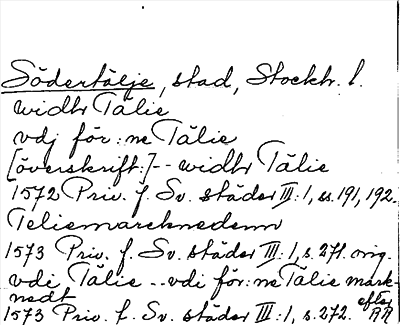 Södertälje, stad, Stockh. l.
widhr Tälie
vdj för:ne Tälie
[överskrift:]-- widhr Tälie
1572 Priv. f. Sv. städer III:1, ss. 191, 192.
Teliemarcknedenn
1573 Priv. f. Sv. städer III:1, s. 271. orig.
vdi Tälie -- vdi för:ne Tälie mark-
nedt
1573 Priv. f. Sv. städer III:1, s. 272. efter RR